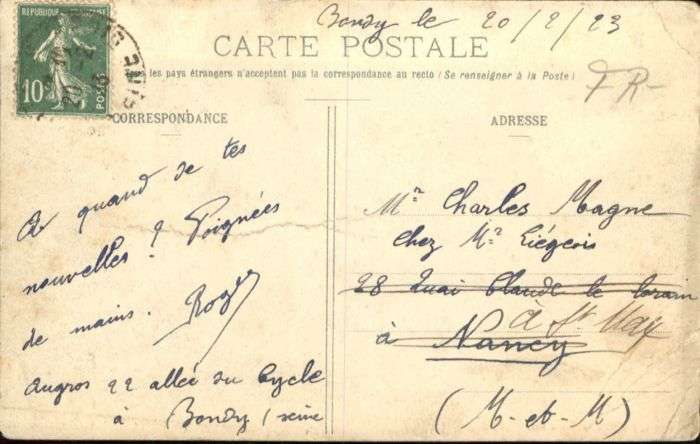 Bondy le 20/2/23
REPUBLIQUE FRANÇAISE
10c
POSTES
CARTE POSTALE
les pays étrangers n'acceptent pas la correspondance au recto (Se renseigner à la Poste)
FR-
CORRESPONDANCE
A quand de tes
nouvelles ? Poignées
de mains. Roger
Augros 22 allée du Cycle
à Bondy (seine
ADRESSE
Mr Charles Magne
chez Mr Liégeois
28 Quai Claude le Lorrain
à St Max
à Nancy
(M-et-M)